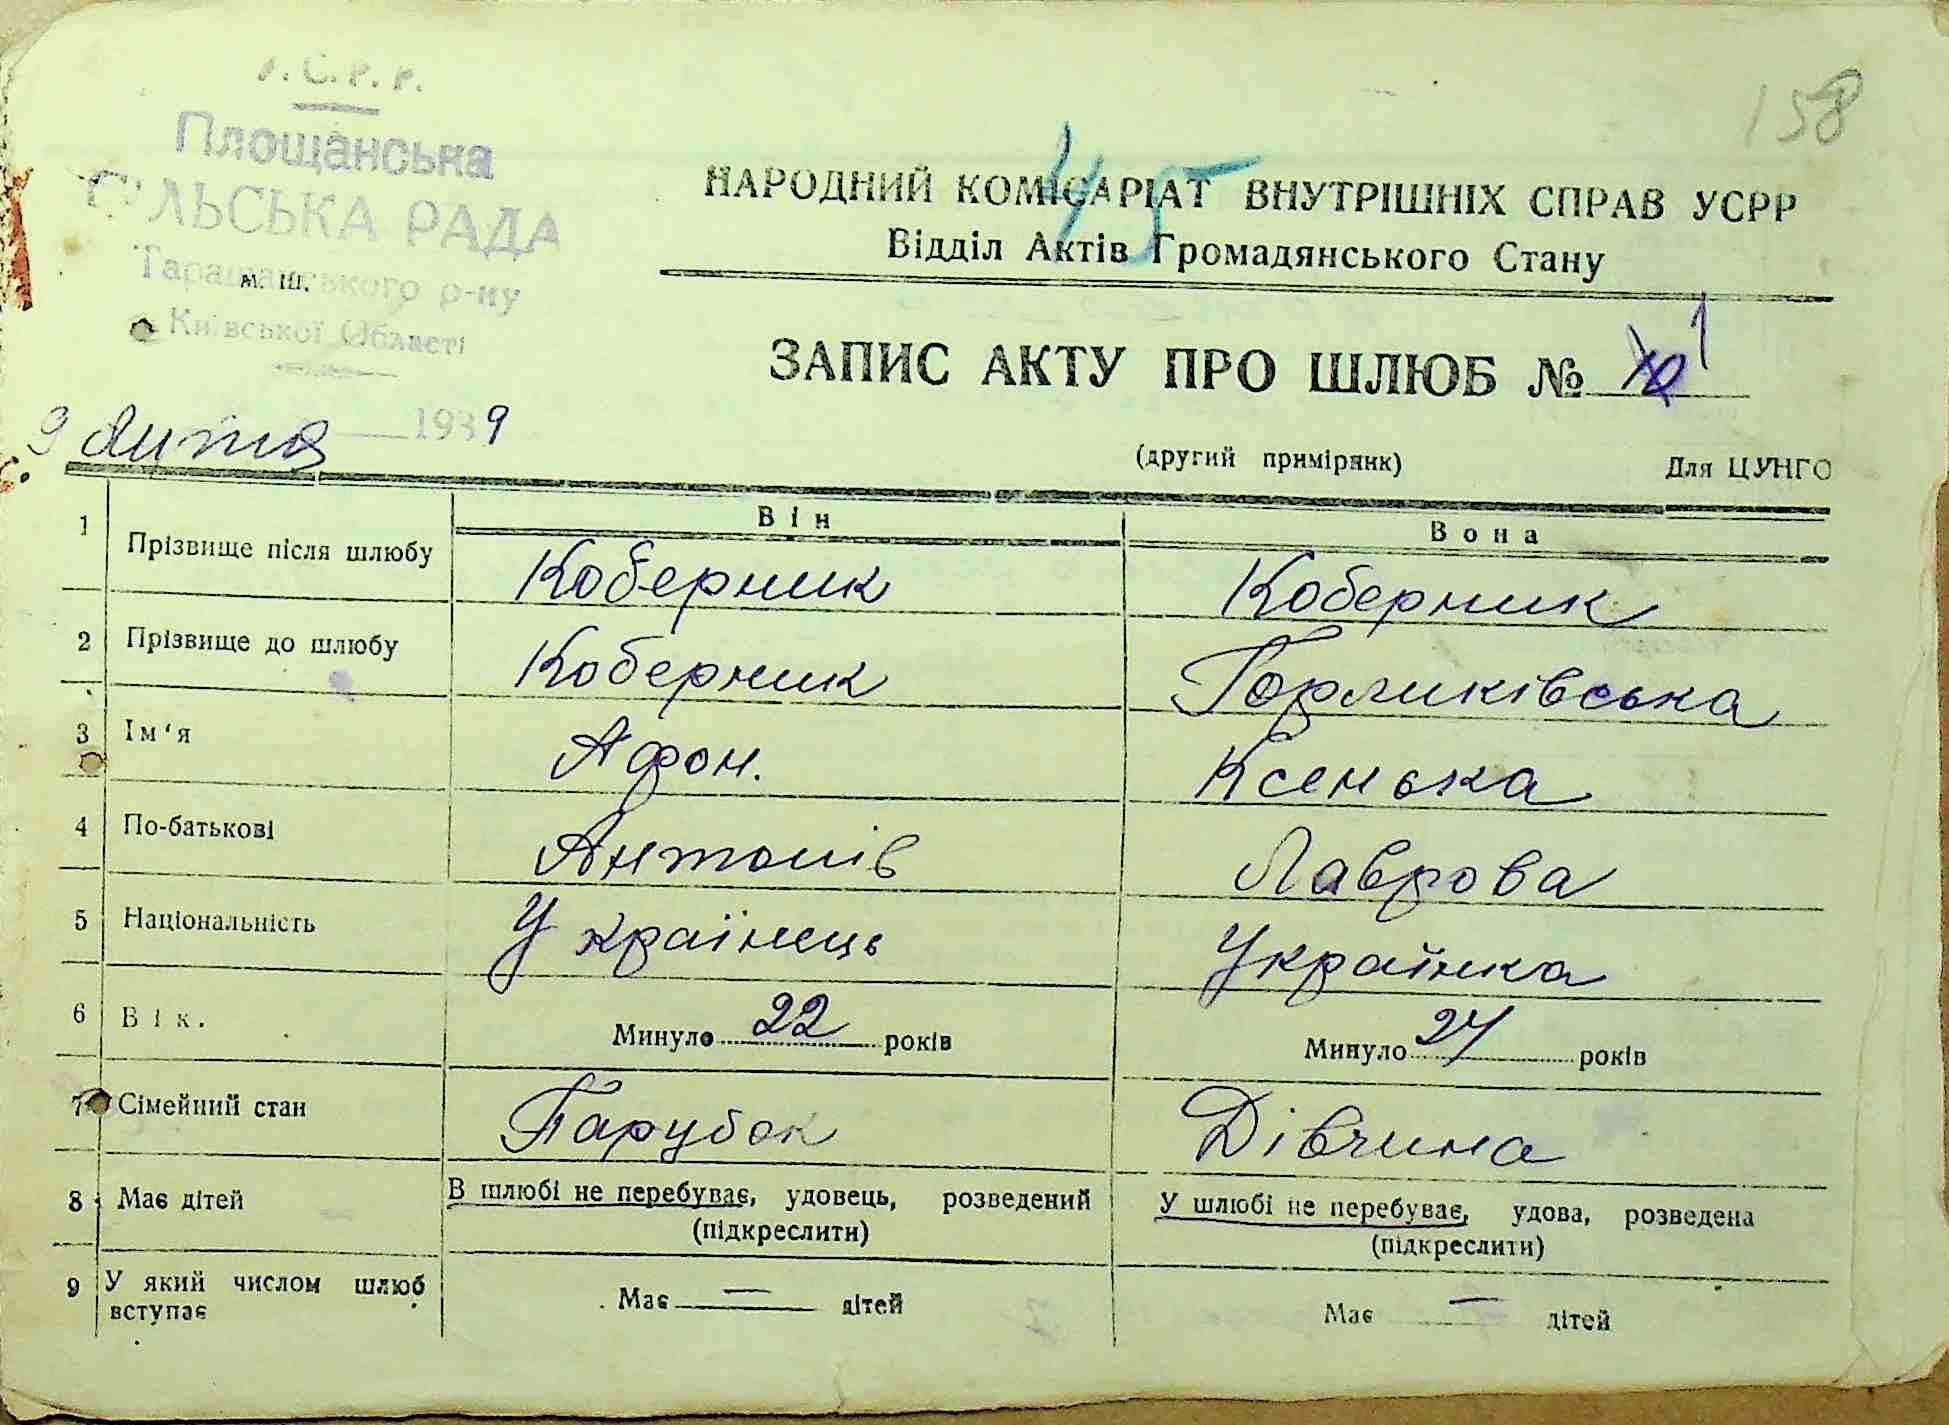 158
У.С.Р.Р.
Площанська
СІЛЬСЬКА РАДА
Таращанського р-ну
м. Ш.
Київської Області
45
НАРОДНИЙ КОМІСАРІАТ ВНУТРІШНІХ СПРАВ УСРР
Відділ Актів Громадянського Стану
ЗАПИС АКТУ ПРО ШЛЮБ № 1
9 Лютия 1939
(другий примірник) Для ЦУНГО
Він Вона
1 Прізвище після шлюбу Коберник Коберник
2 Прізвище до шлюбу Коберник Горликівська
3 Ім'я Афон. Ксенька
4 По-батькові Антонів Лаврова
5 Національність Українець Українка
6 Вік. Минуло 22 років Минуло 24 років
7 Сімейний стан Парубок Дівчина
8 Має дітей В шлюбі не перебуває, удовець, розведений У шлюбі не перебуває, удова, розведена
(підкреслити) (підкреслити)
9 У який числом шлюб
вступає Має — дітей Має — дітей